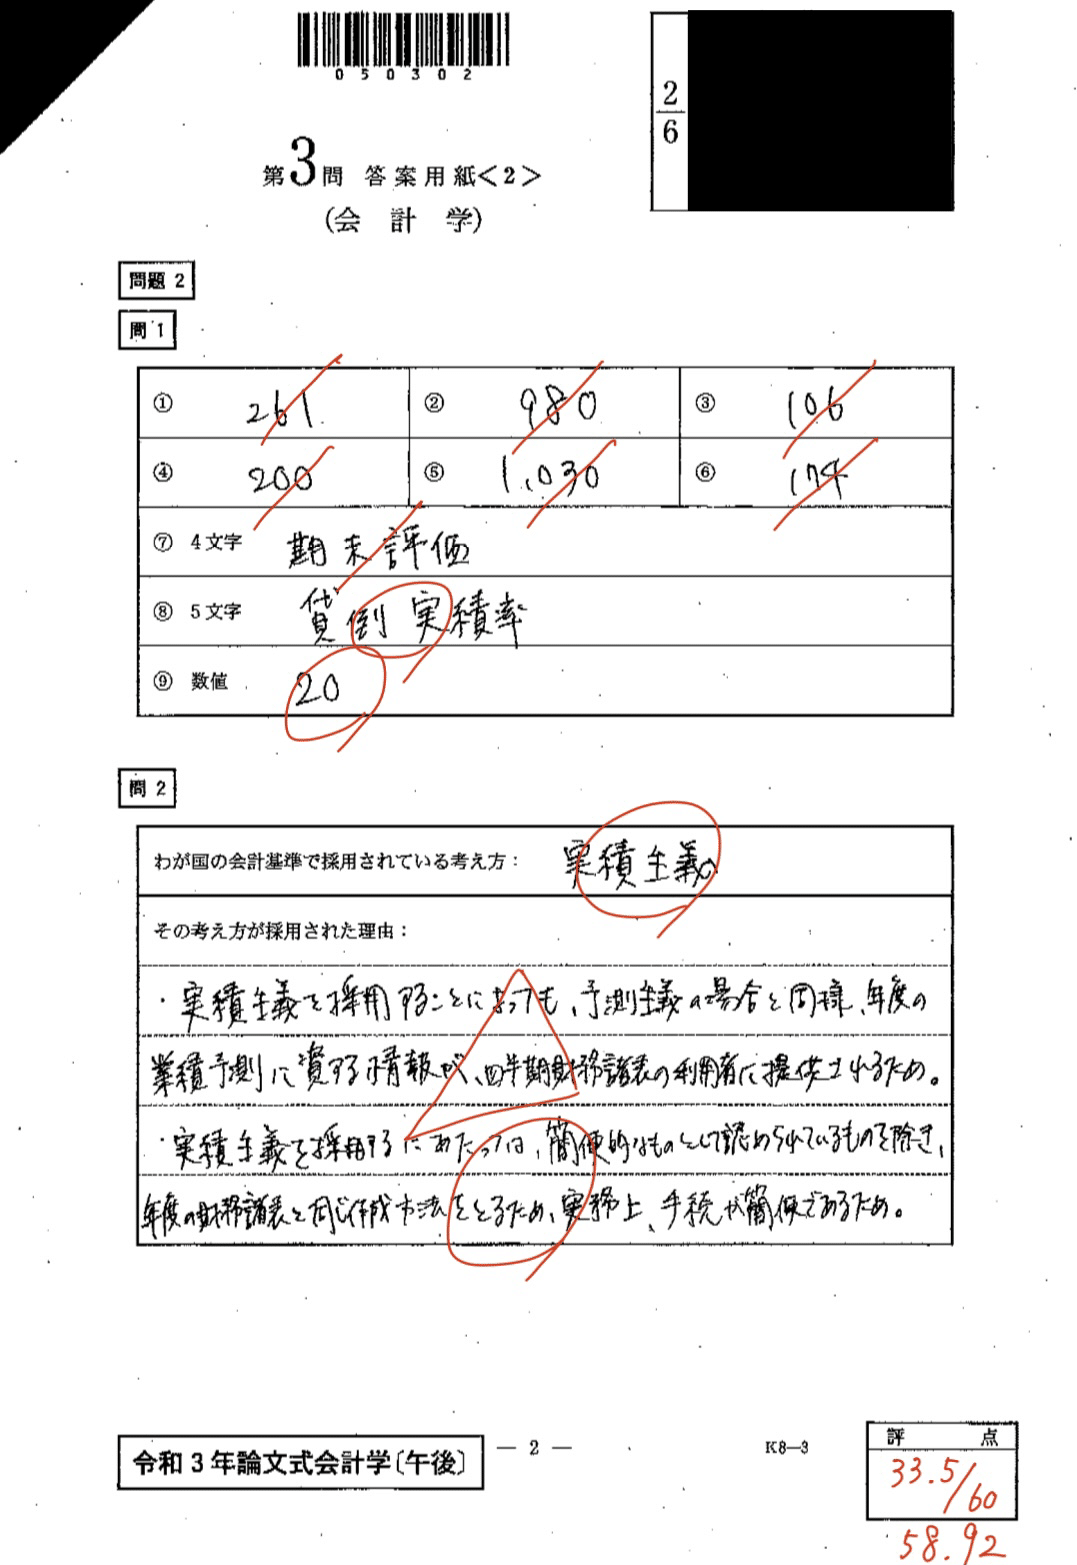 050302
2
6
第3問 答案用紙<2>
(会計学)
問題 2
問 1
① 261 ② 980 ③ 106
④ 200 ⑤ 1,030 ⑥ 174
⑦ 4文字 期末評価
⑧ 5文字 貸倒実積率
⑨ 数値 20
問 2
わが国の会計基準で採用されている考え方: 実積主義
その考え方が採用された理由:
・実積主義を採用することによっても、予測主義の場合と同様、年度の
業積予測に資する情報が、四半期財務諸表の利用者に提供されるため。
・実積主義を採用するにあたっては、簡便的なものとして認められているものを除き、
年度の財務諸表と同じ作成方法をとるため、実務上、手続が簡便であるため。
令和3年論文式会計学〔午後〕
— 2 —
K8—3
評点
33.5/60
58.92